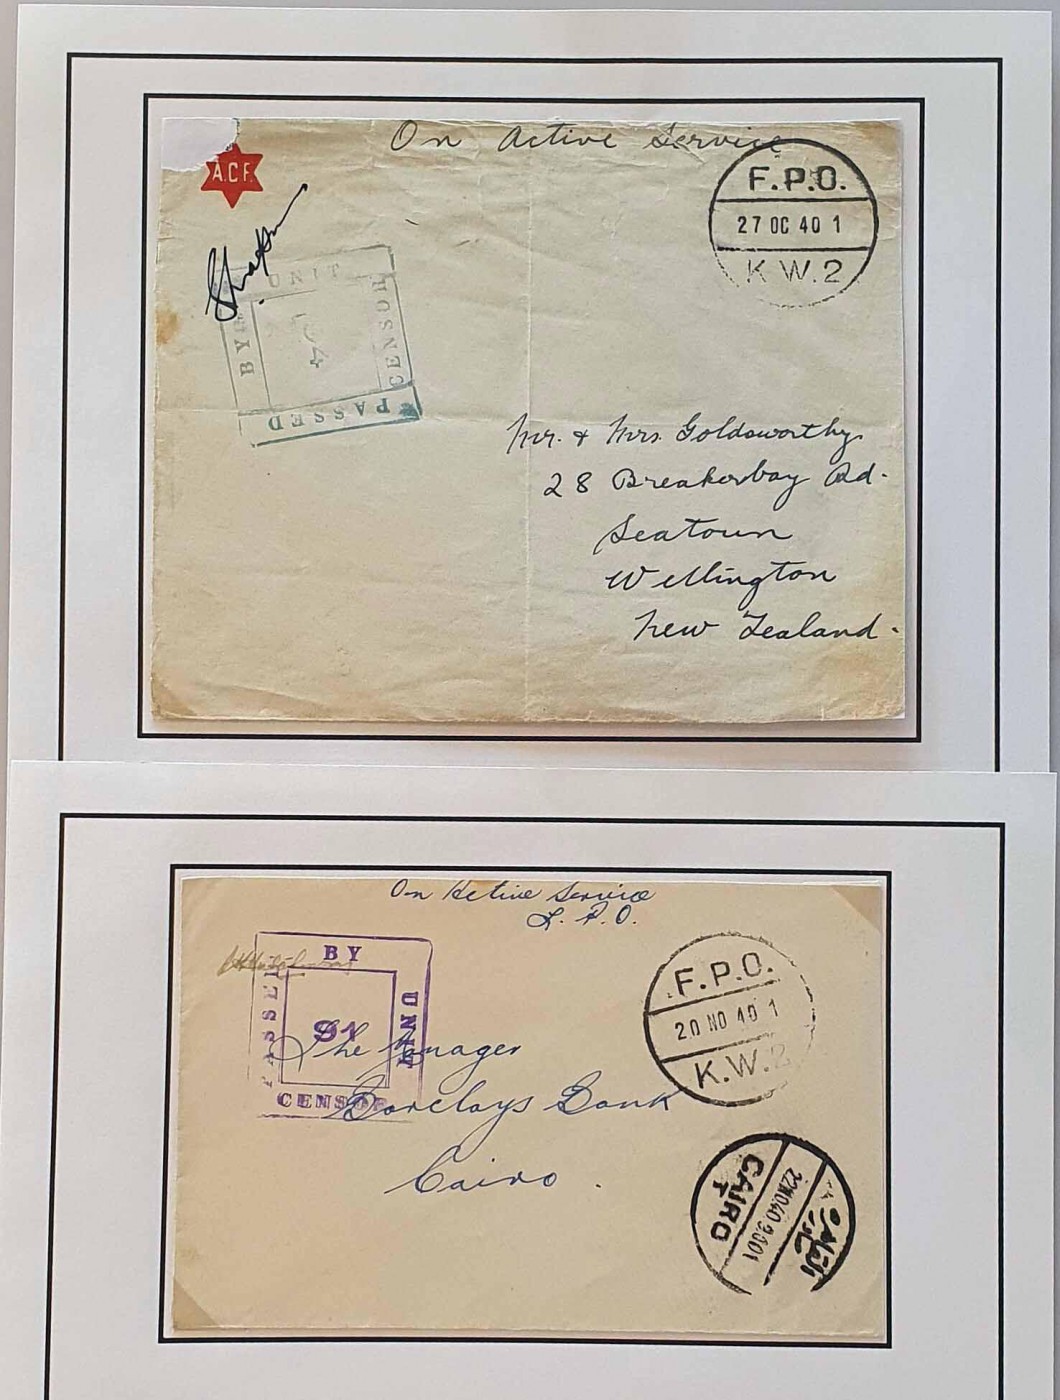 On Active Service
A.C.F.
F.P.O.
27 OC 40 1
K W.2
UNIT
BY
CENSOR
PASSED
Mr. & Mrs. Goldsworthy.
28 Breakerbay Rd.
Seatoun
Wellington
New Zealand.
On Active Service
F. P. O.
BY
PASSED
UNIT
91
CENSOR
F.P.O.
20 NO 40 1
K.W.2
The Manager
Barclays Bank
Cairo.
CAIRO
T
22 NO.40 9.00 1